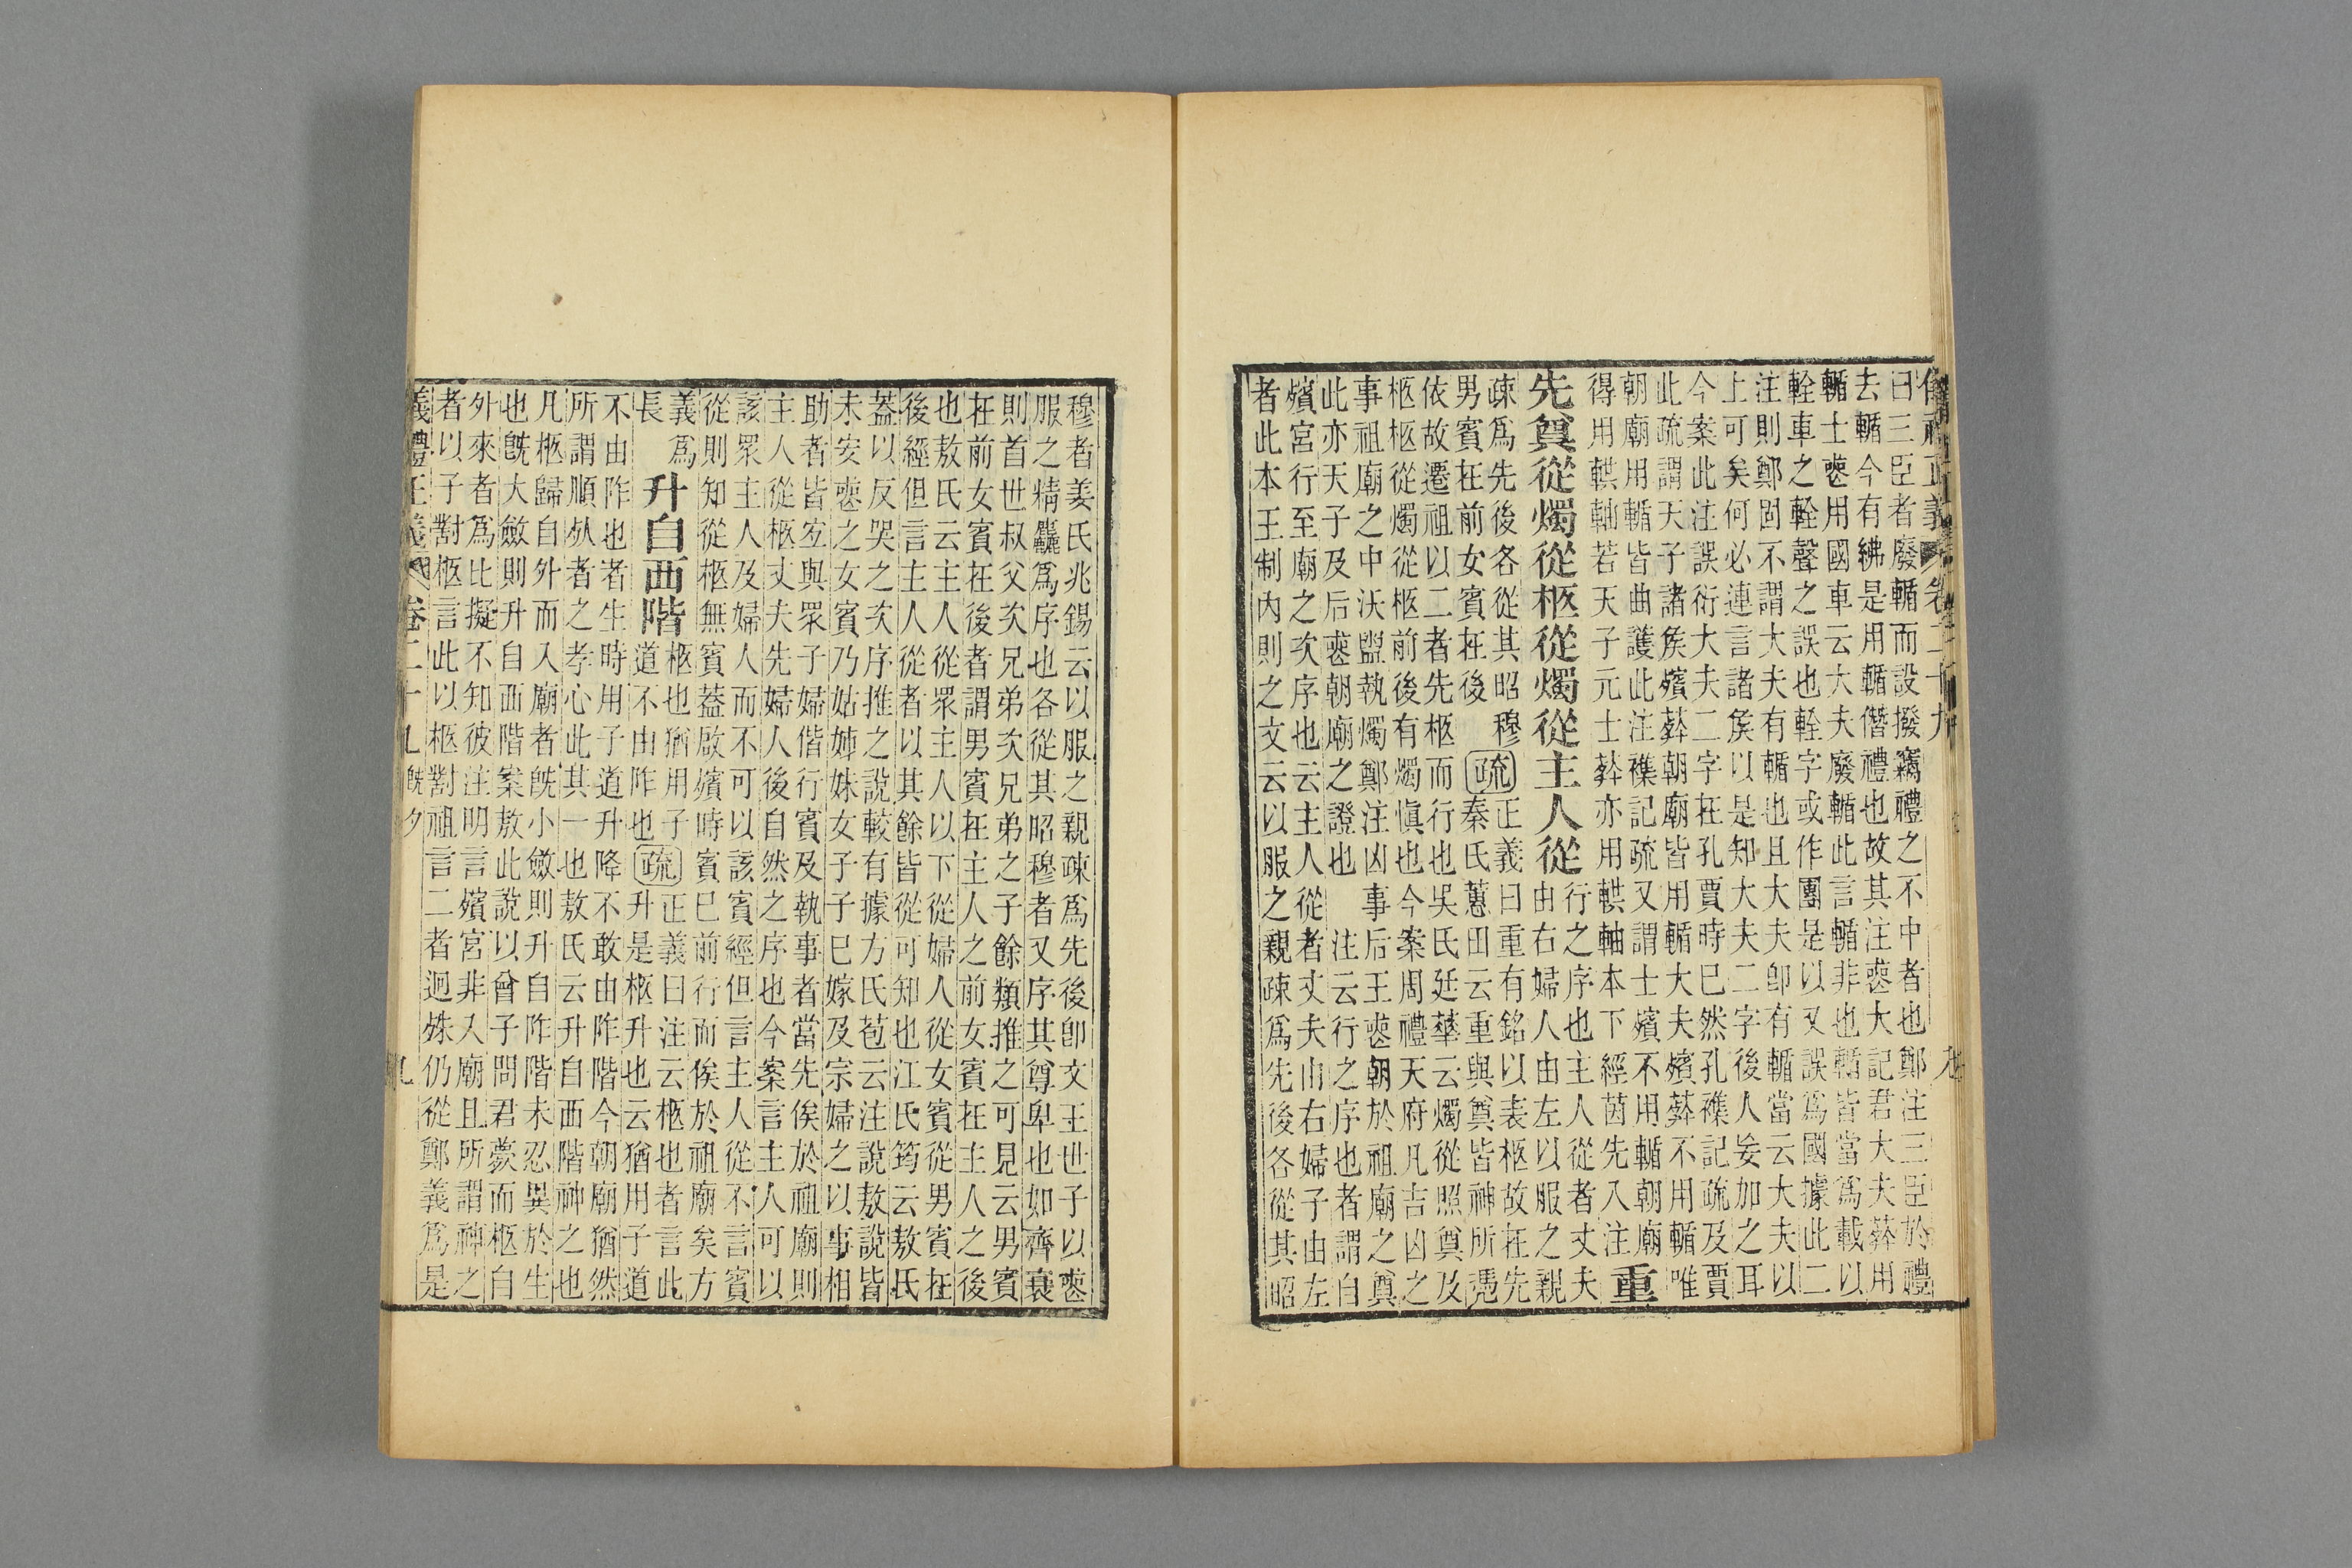 儀禮正義 卷二十九 九
曰三臣者廢輴而設撥竊禮之不中者也鄭注三臣於禮
去輴今有紼是用輴僭禮也故其注喪大記君大夫葬用
輴士喪用國車云大夫廢輴此言輴非也輴皆當爲載以
輇車之輇聲之誤也輇字或作團是以又誤爲國據此二
注則鄭固不謂大夫有輴也且大夫卽有輴當云大夫以
上可矣何必連言諸矦以是知大夫二字後人妄加之耳
今案此注誤衍大夫二字在孔賈時已然孔襍記疏及賈
此疏謂天子諸矦殯葬朝廟皆用輴大夫殯葬不用輴唯
朝廟用輴皆曲護此注襍記疏又謂士殯不用輴朝廟
得用輁軸若天子元士葬亦用輁軸本下經茵先入注
重
先奠從燭從柩從燭從主人從
行之序也主人從者丈夫
由右婦人由左以服之親
疎爲先後各從其昭穆
疏
正義曰重有銘以表柩故在先
男賓在前女賓在後
秦氏蕙田云重與奠皆神所憑
依故遷祖以二者先柩而行也吳氏廷華云燭從照奠及
柩柩從燭從柩前後有燭愼也今案周禮天府凡吉凶之
事祖廟之中沃盥執燭鄭注凶事后王喪朝於祖廟之奠
此亦天子及后喪朝廟之證也 注云行之序也者謂自
殯宮行至廟之次序也云主人從者丈夫由右婦子由左
者此本王制內則之文云以服之親疎爲先後各從其昭
穆者姜氏兆錫云以服之親疎爲先後卽文王世子以喪
服之精麤爲序也各從其昭穆者又序其尊卑也如齊衰
則首世叔父次兄弟次兄弟之子餘類推之可見云男賓
在前女賓在後者謂男賓在主人之前女賓在主人之後
也敖氏云主人從眾主人以下從婦人從女賓從男賓在
後經但言主人從者以其餘皆從可知也江氏筠云敖氏
蓋以反哭之次序推之說較有據方氏苞云注說敖說皆
未安喪之女賓乃姑姊妹女子子已嫁及宗婦之以事相
助者皆宐與眾子婦偕行賓及執事者當先俟於祖廟則
主人從柩丈夫先婦人後自然之序也今案言主人可以
該眾主人及婦人而不可以該賓經但言主人從不言賓
從則知從柩無賓蓋啟殯時賓已前行而俟於祖廟矣方
義爲
長
升自西階
柩也猶用子
道不由阼也
疏
正義曰注云柩也者言此
升是柩升也云猶用子道
不由阼也者生時用子道升降不敢由阼階今朝廟猶然
所謂順死者之孝心此其一也敖氏云升自西階神之也
凡柩歸自外而入廟者旣小斂則升自阼階未忍異於生
也旣大斂則升自西階案敖此說以曾子問君薨而柩自
外來者爲比擬不知彼注明言殯宮非入廟且所謂神之
者以子對柩言此以柩對祖言二者迥殊仍從鄭義爲是
義禮正義 卷二十九 旣夕 九